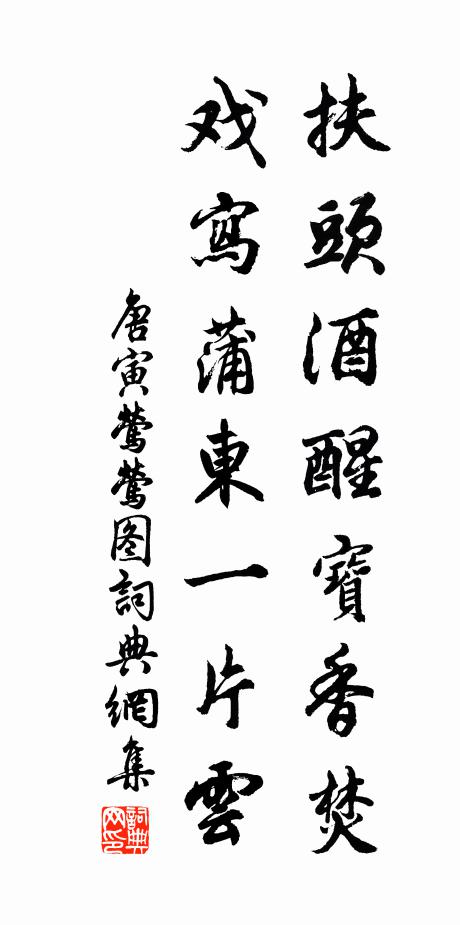 扶頭酒醒寶香焚
戏寫蒲東一片雲
唐寅鶯鶯图詞典網集
詞典网印